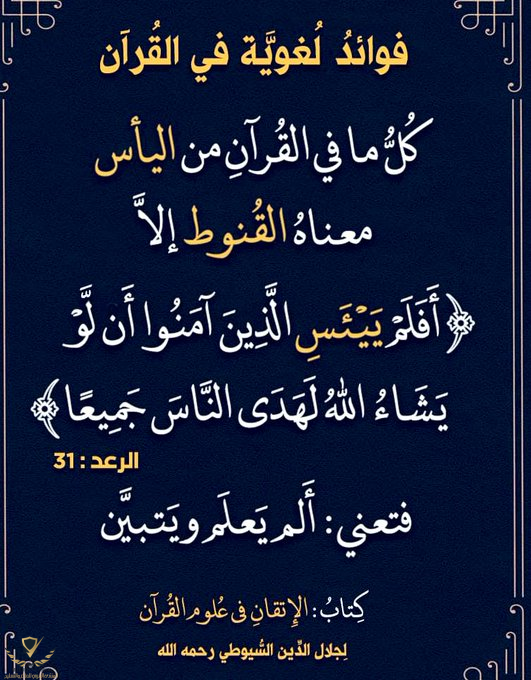 فوائدُ لُغويَّة في القُرآن
كُلُّ ما في القُرآنِ من اليأس
معناهُ القُنوط إلاَّ
﴿أَفَلَمْ يَيْئَسِ الَّذِينَ آمَنُوا أَن لَّوْ
يَشَاءُ اللهُ لَهَدَى النَّاسَ جَمِيعًا﴾
الرعد : 31
فتعني: أَلم يَعلَم ويَتبيَّن
كِتابُ: الإتقانِ في عُلوم القُرآن
لِجلال الدِّين السُّيوطي رحمه الله